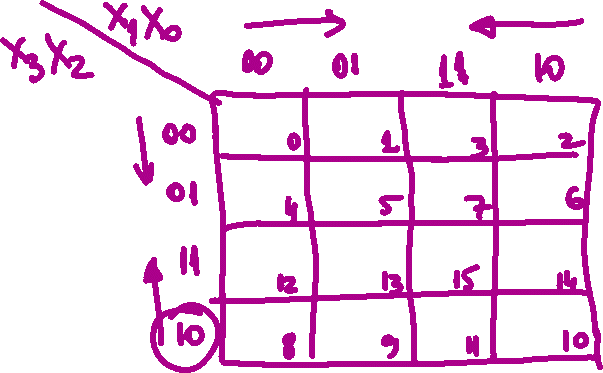 X₁X₀
X₃X₂
00 01 11 10
00 0 1 3 2
01 4 5 7 6
11 12 13 15 14
10 8 9 11 10